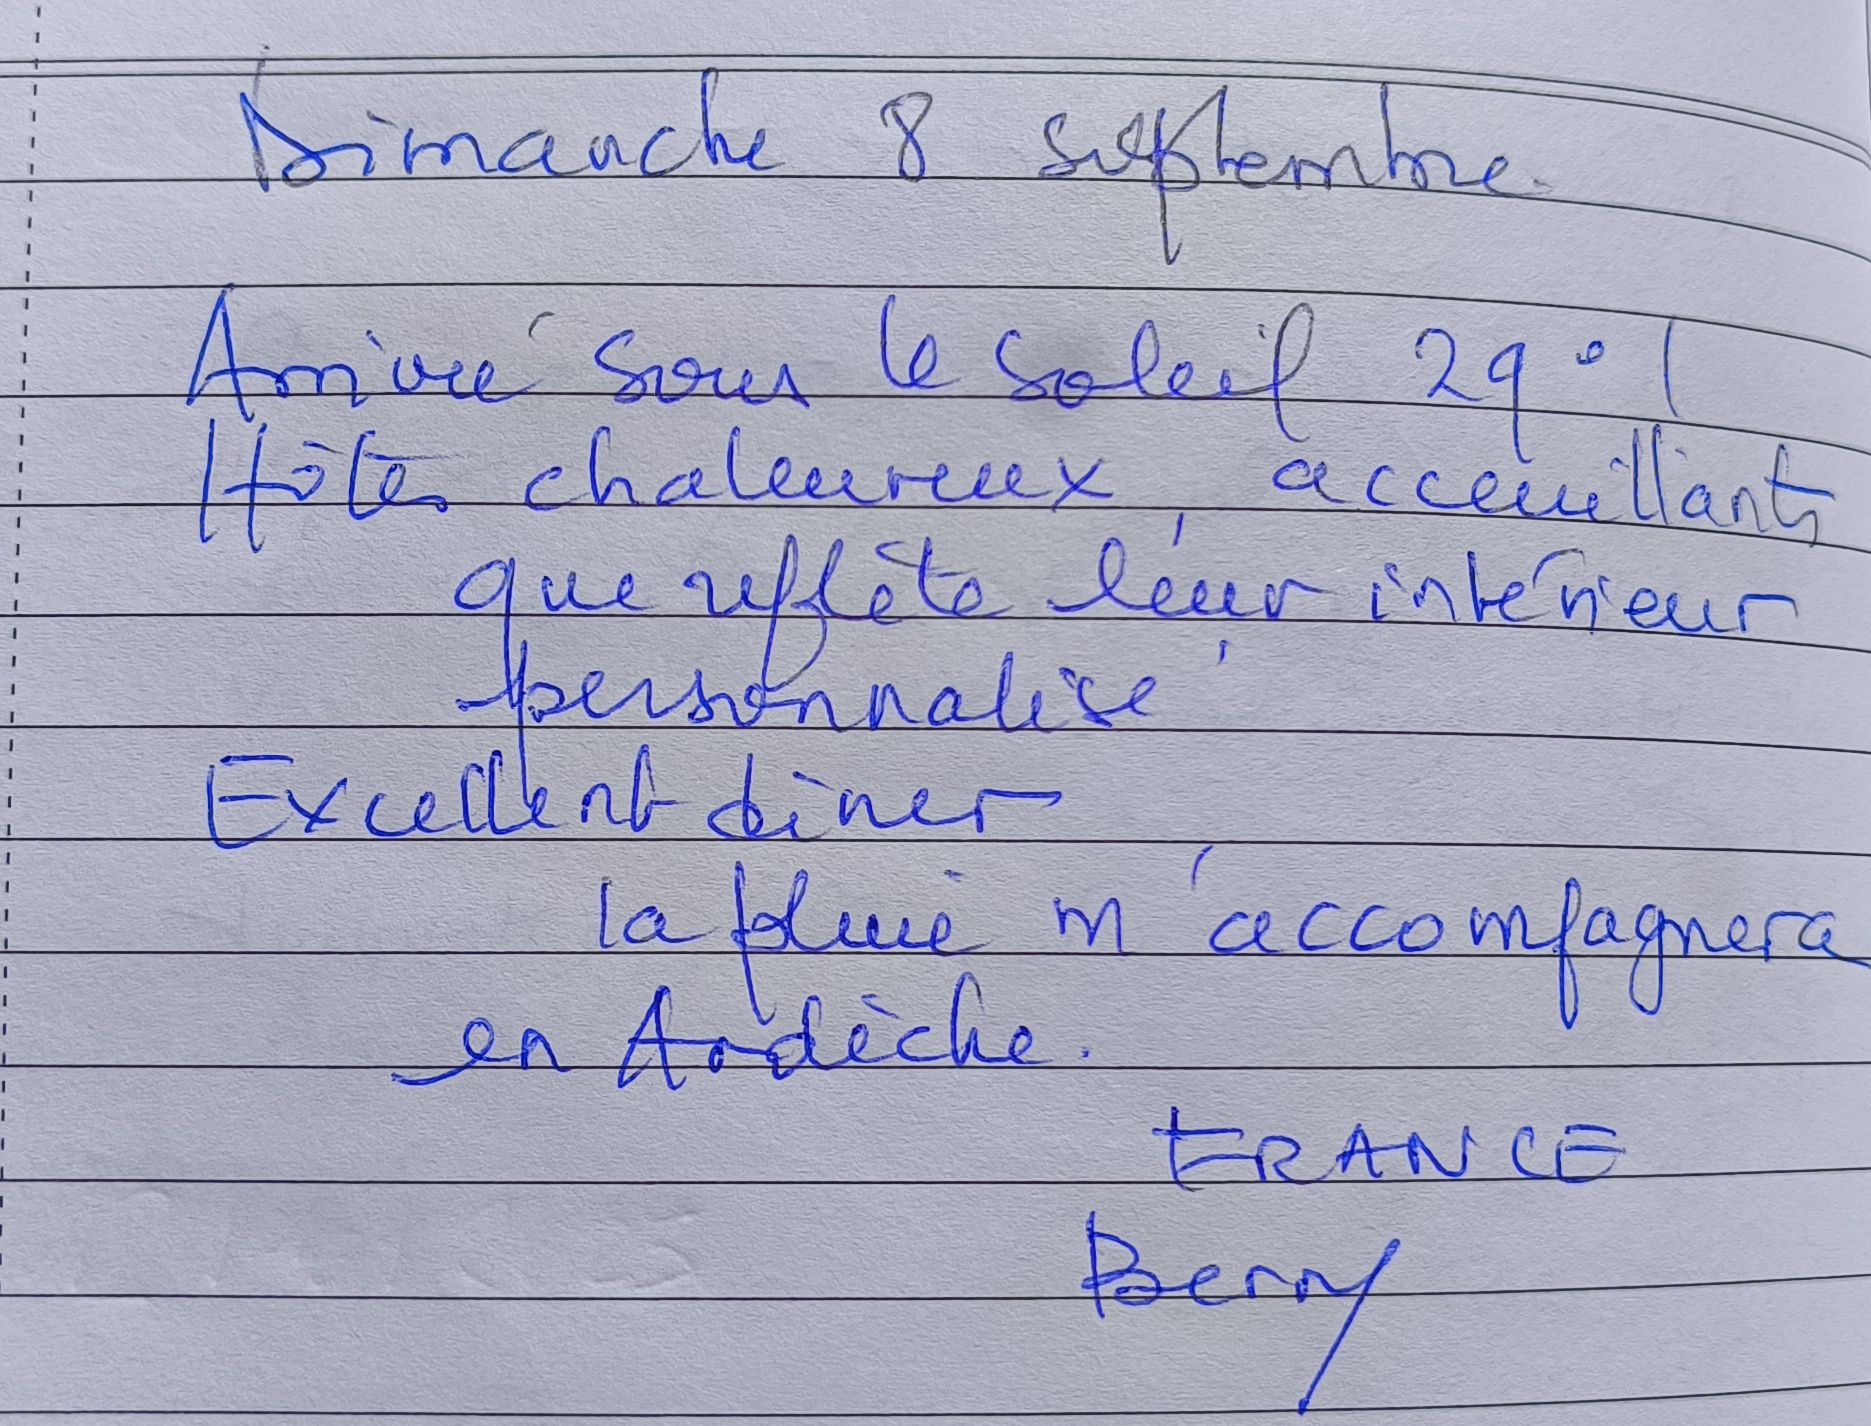 Dimanche 8 septembre.
Arrivé sous le soleil 29° !
Hôtes chaleureux acceuillants
que reflète leur intérieur
personnalisé
Excellent dîner
la pluie m'accompagnera
en Ardèche.
FRANCE
Berry